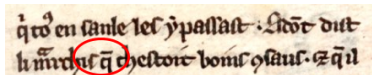 q̃ toꝰ en sanle les ẏpassast . Adõt dist
li marchis q̃ chestoit boins ꝯsaus . ⁊ q̃il